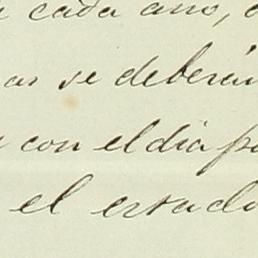 cada año,
as se deberán
con el dia
el estado